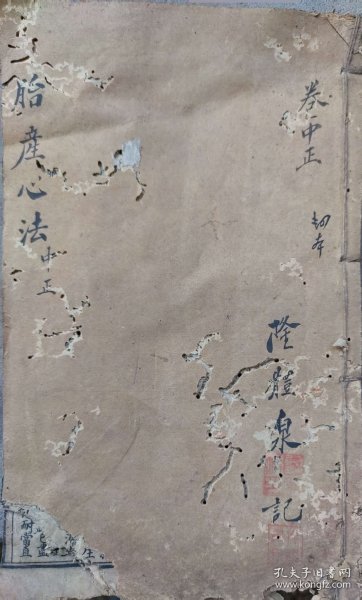 卷中正
胎產心法中正
隆體泉記
孔夫子旧书网
www.kongfz.com